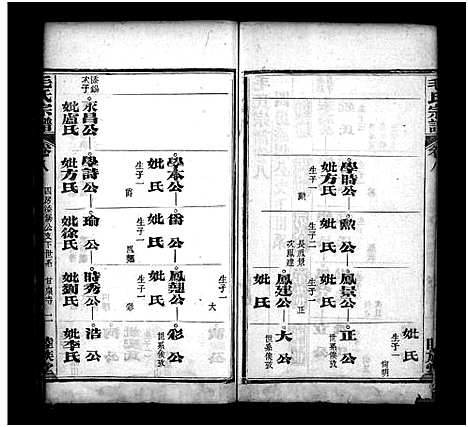 毛氏宗譜
卷八
學時公
妣方氏
生子一
勲
勲公
妣氏
生子二
長鳳景
次鳳建
鳳景公
妣氏
生子一
正
正公
妣氏
生子一
鳳建公
妣氏
生子一
大
大公
世系俟攷
睦族堂
學本公
妣氏
生子一
尙
尙公
妣氏
生子一
鳳翹
妣氏
生子一
彩
彩公
世系俟攷
次子
永昌公
妣盧氏
學詩公
妣方氏
瑜公
妣徐氏
時秀公
妣劉氏
浩公
妣李氏
毛氏宗譜
卷八
睦族堂